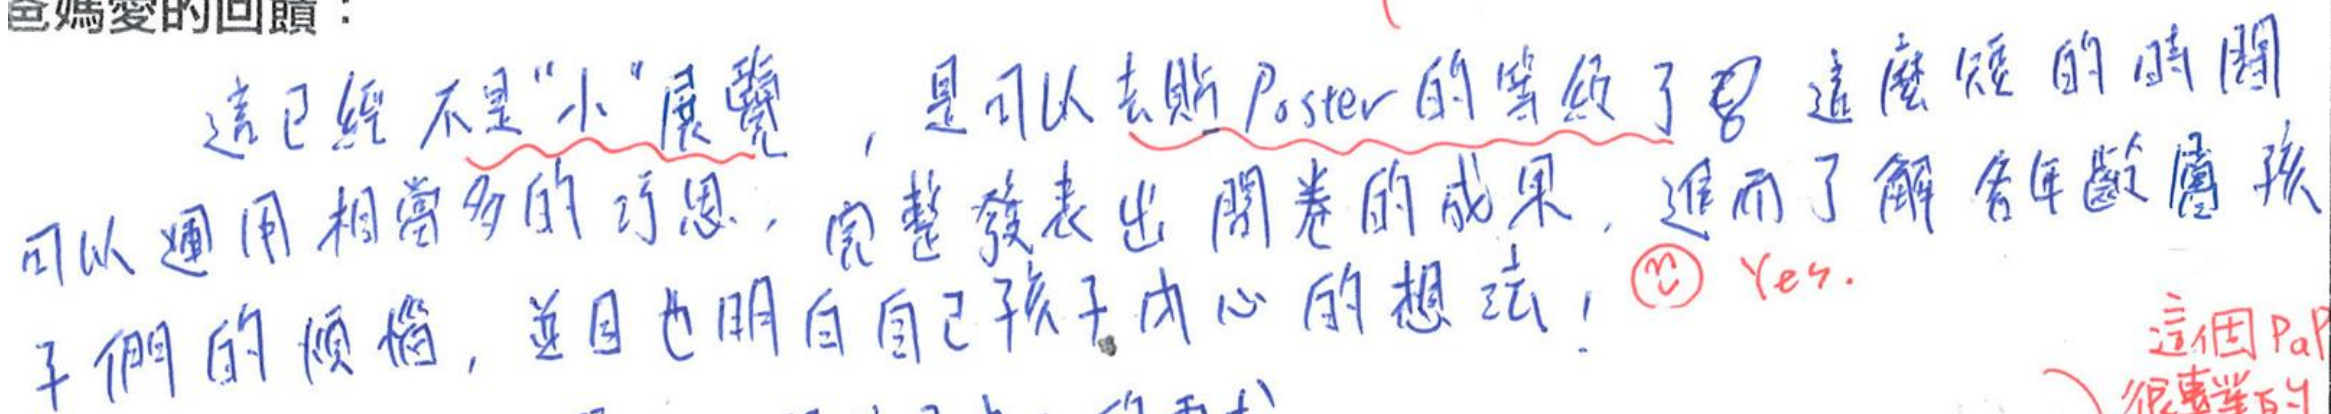 爸媽愛的回饋：
這已經不是"小"展覽，是可以去貼Poster的等級了 這麼短的時間
可以運用相當多的巧思，完整發表出問卷的成果，進而了解各年齡層孩
子們的煩惱，並且也明白自己孩子內心的想法！ Yes.
這個PaP
很專業的